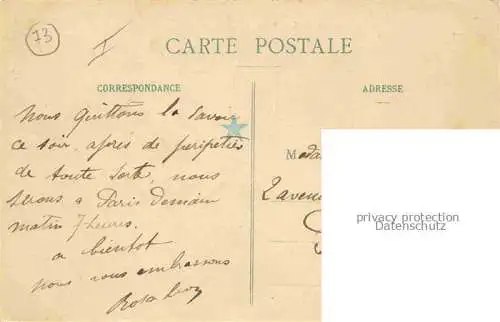 73
I
CARTE POSTALE
CORRESPONDANCE
ADRESSE
Nous quittons la Savoie
ce soir, après de péripéties
de toute sorte, nous
serons a Paris demain
matin 7 heures.
a bientot
nous vous embrassons
Mada
2 avenu
privacy protection
Datenschutz